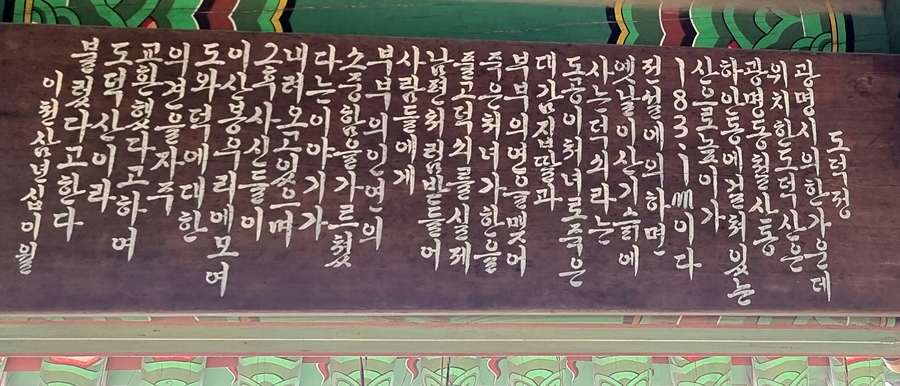 도덕정
광명시의 한가운데
위치한 도덕산은
광명동 철산동
하안동에 걸쳐 있는
산으로 높이가
183.1m이다
전설에 의하면
옛날 이 산기슭에
사는 덕쇠라는
도공이 처녀로 죽은
대감집 딸과
부부의 연을 맺어
죽은 처녀가 한을
풀고 덕쇠를 실제
남편처럼 받들어
사람들에게
부부의 인연의
소중함을 가르쳤
다는 이야기가
내려오고 있으며
그 후 사신들이
이 산봉우리에 모여
도와 덕에 대한
의견을 자주
교환했다고 하여
도덕산이라
불렀다고 한다
이천삼년십이월